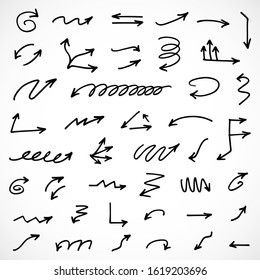 shutterstock.com · 1619203696